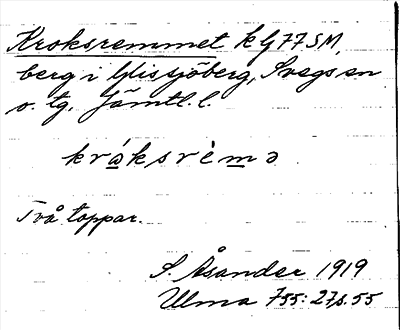 Kroksremmet kG77SM,
berg i Ulvsjöberg, Svegs sn
o. tg. Jämtl. l.
kråksrèmə
Två toppar.
S. Åsander 1919
Ulma 755: 27 s. 55